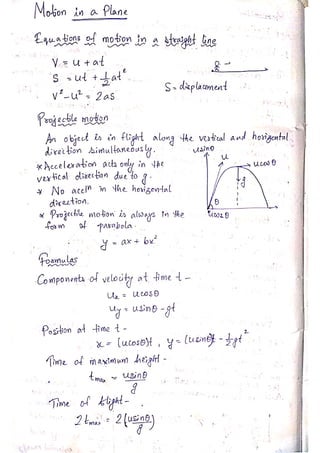 Motion in a Plane
Equations of motion in a straight line
V = u + at
S = ut + ½at²
V² - u² = 2as
S - displacement
Projectile motion
An object is in flight along the vertical and horizontal
direction simultaneously.
* Acceleration acts only in the
vertical direction due to g.
* No accelⁿ in the horizontal
direction.
* Projectile motion is always in the
form of parabola.
y = ax + bx²
usinθ
u
ucosθ
g
θ
ucosθ
Formulas
Components of velocity at time t -
ux = ucosθ
uy = usinθ - gt
Position at time t -
x = (ucosθ)t , y = (usinθ)t - ½gt²
Time of maximum height -
tmax = usinθ/g
Time of flight -
2tmax = 2(usinθ/g)